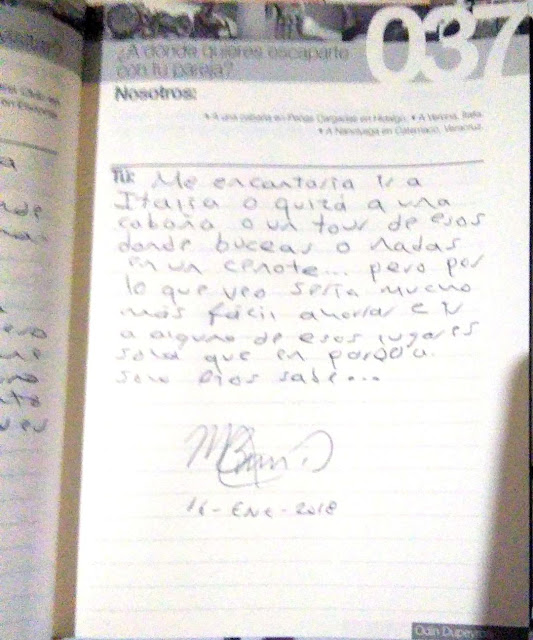 037
¿A dónde quieres escaparte
con tu pareja?
Nosotros:
• A una cabaña en Peñas Cargadas en Hidalgo. • A Verona, Italia
• A Nanciyaga en Catemaco, Veracruz
Tú: Me encantaría ir a
Italia o quizá a una
cabaña o un tour de esos
donde buceas o nadas
en un cenote... pero por
lo que veo sería mucho
más fácil ahorrar e ir
a alguno de esos lugares
sola que en pareja.
solo Dios sabe...
16-ENE-2018
Odin Dupeyron